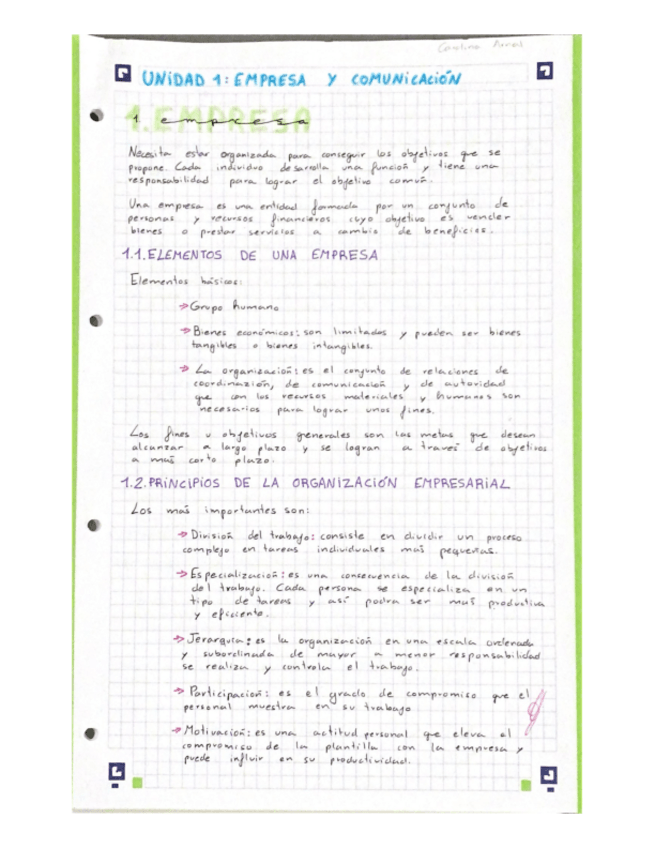 UNIDAD 1: EMPRESA Y COMUNICACIÓN
1. EMPRESA
1. empresa
Necesita estar organizada para conseguir los objetivos que se
propone. Cada individuo desarrolla una función y tiene una
responsabilidad para lograr el objetivo común.
Una empresa es una entidad formada por un conjunto de
personas y recursos financieros cuyo objetivo es vender
bienes o prestar servicios a cambio de beneficios.
1.1. ELEMENTOS DE UNA EMPRESA
Elementos básicos:
→ Grupo humano
→ Bienes económicos: son limitados y pueden ser bienes
tangibles o bienes intangibles.
→ La organización: es el conjunto de relaciones de
coordinazión, de comunicación y de autoridad
que con los recursos materiales y humanos son
necesarios para lograr unos fines.
Los fines u objetivos generales son las metas que desean
alcanzar a largo plazo y se logran a través de objetivos
a más corto plazo.
1.2. PRINCIPIOS DE LA ORGANIZACIÓN EMPRESARIAL
Los más importantes son:
→ División del trabajo: consiste en dividir un proceso
complejo en tareas individuales más pequeñas.
→ Especialización: es una consecuencia de la división
del trabajo. Cada persona se especializa en un
tipo de tareas y así podra ser más productiva
y eficiente.
→ Jerarquía: es la organización en una escala ordenada
y subordinada de mayor a menor responsabilidad
se realiza y controla el trabajo.
→ Participación: es el grado de compromiso que el
personal muestra en su trabajo
→ Motivación: es una actitud personal que eleva el
compromiso de la plantilla con la empresa y
puede influir en su productividad.